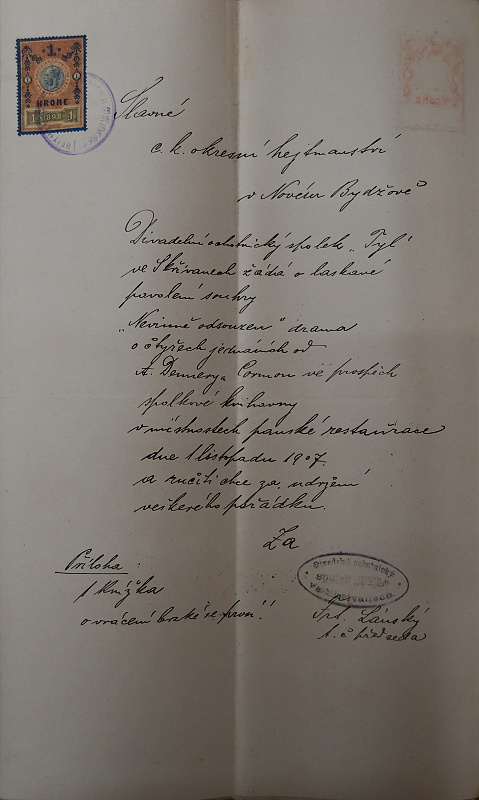 1
KRONE
1 1898 1
Slavné
c. k. okresní hejtmanství
v Novém Bydžově
Divadelní ochotnický spolek „Tyl"
ve Skřivanech žádá o laskavé
povolení souhry
„Nevinně odsouzen" drama
o čtyřech jednáních od
A. Dennery a Cormon ve prospěch
spolkové knihovny
v místnostech panské restaurace
dne 1 listopadu 1907.
a ručíti chce za udržení
veškerého pořádku.
Za
Příloha:
1 knížka
o vrácení brzké se prosí!
Divadelní ochotnický
spolek „TYL"
ve Skřivanech
Lánský
t. č. předseda